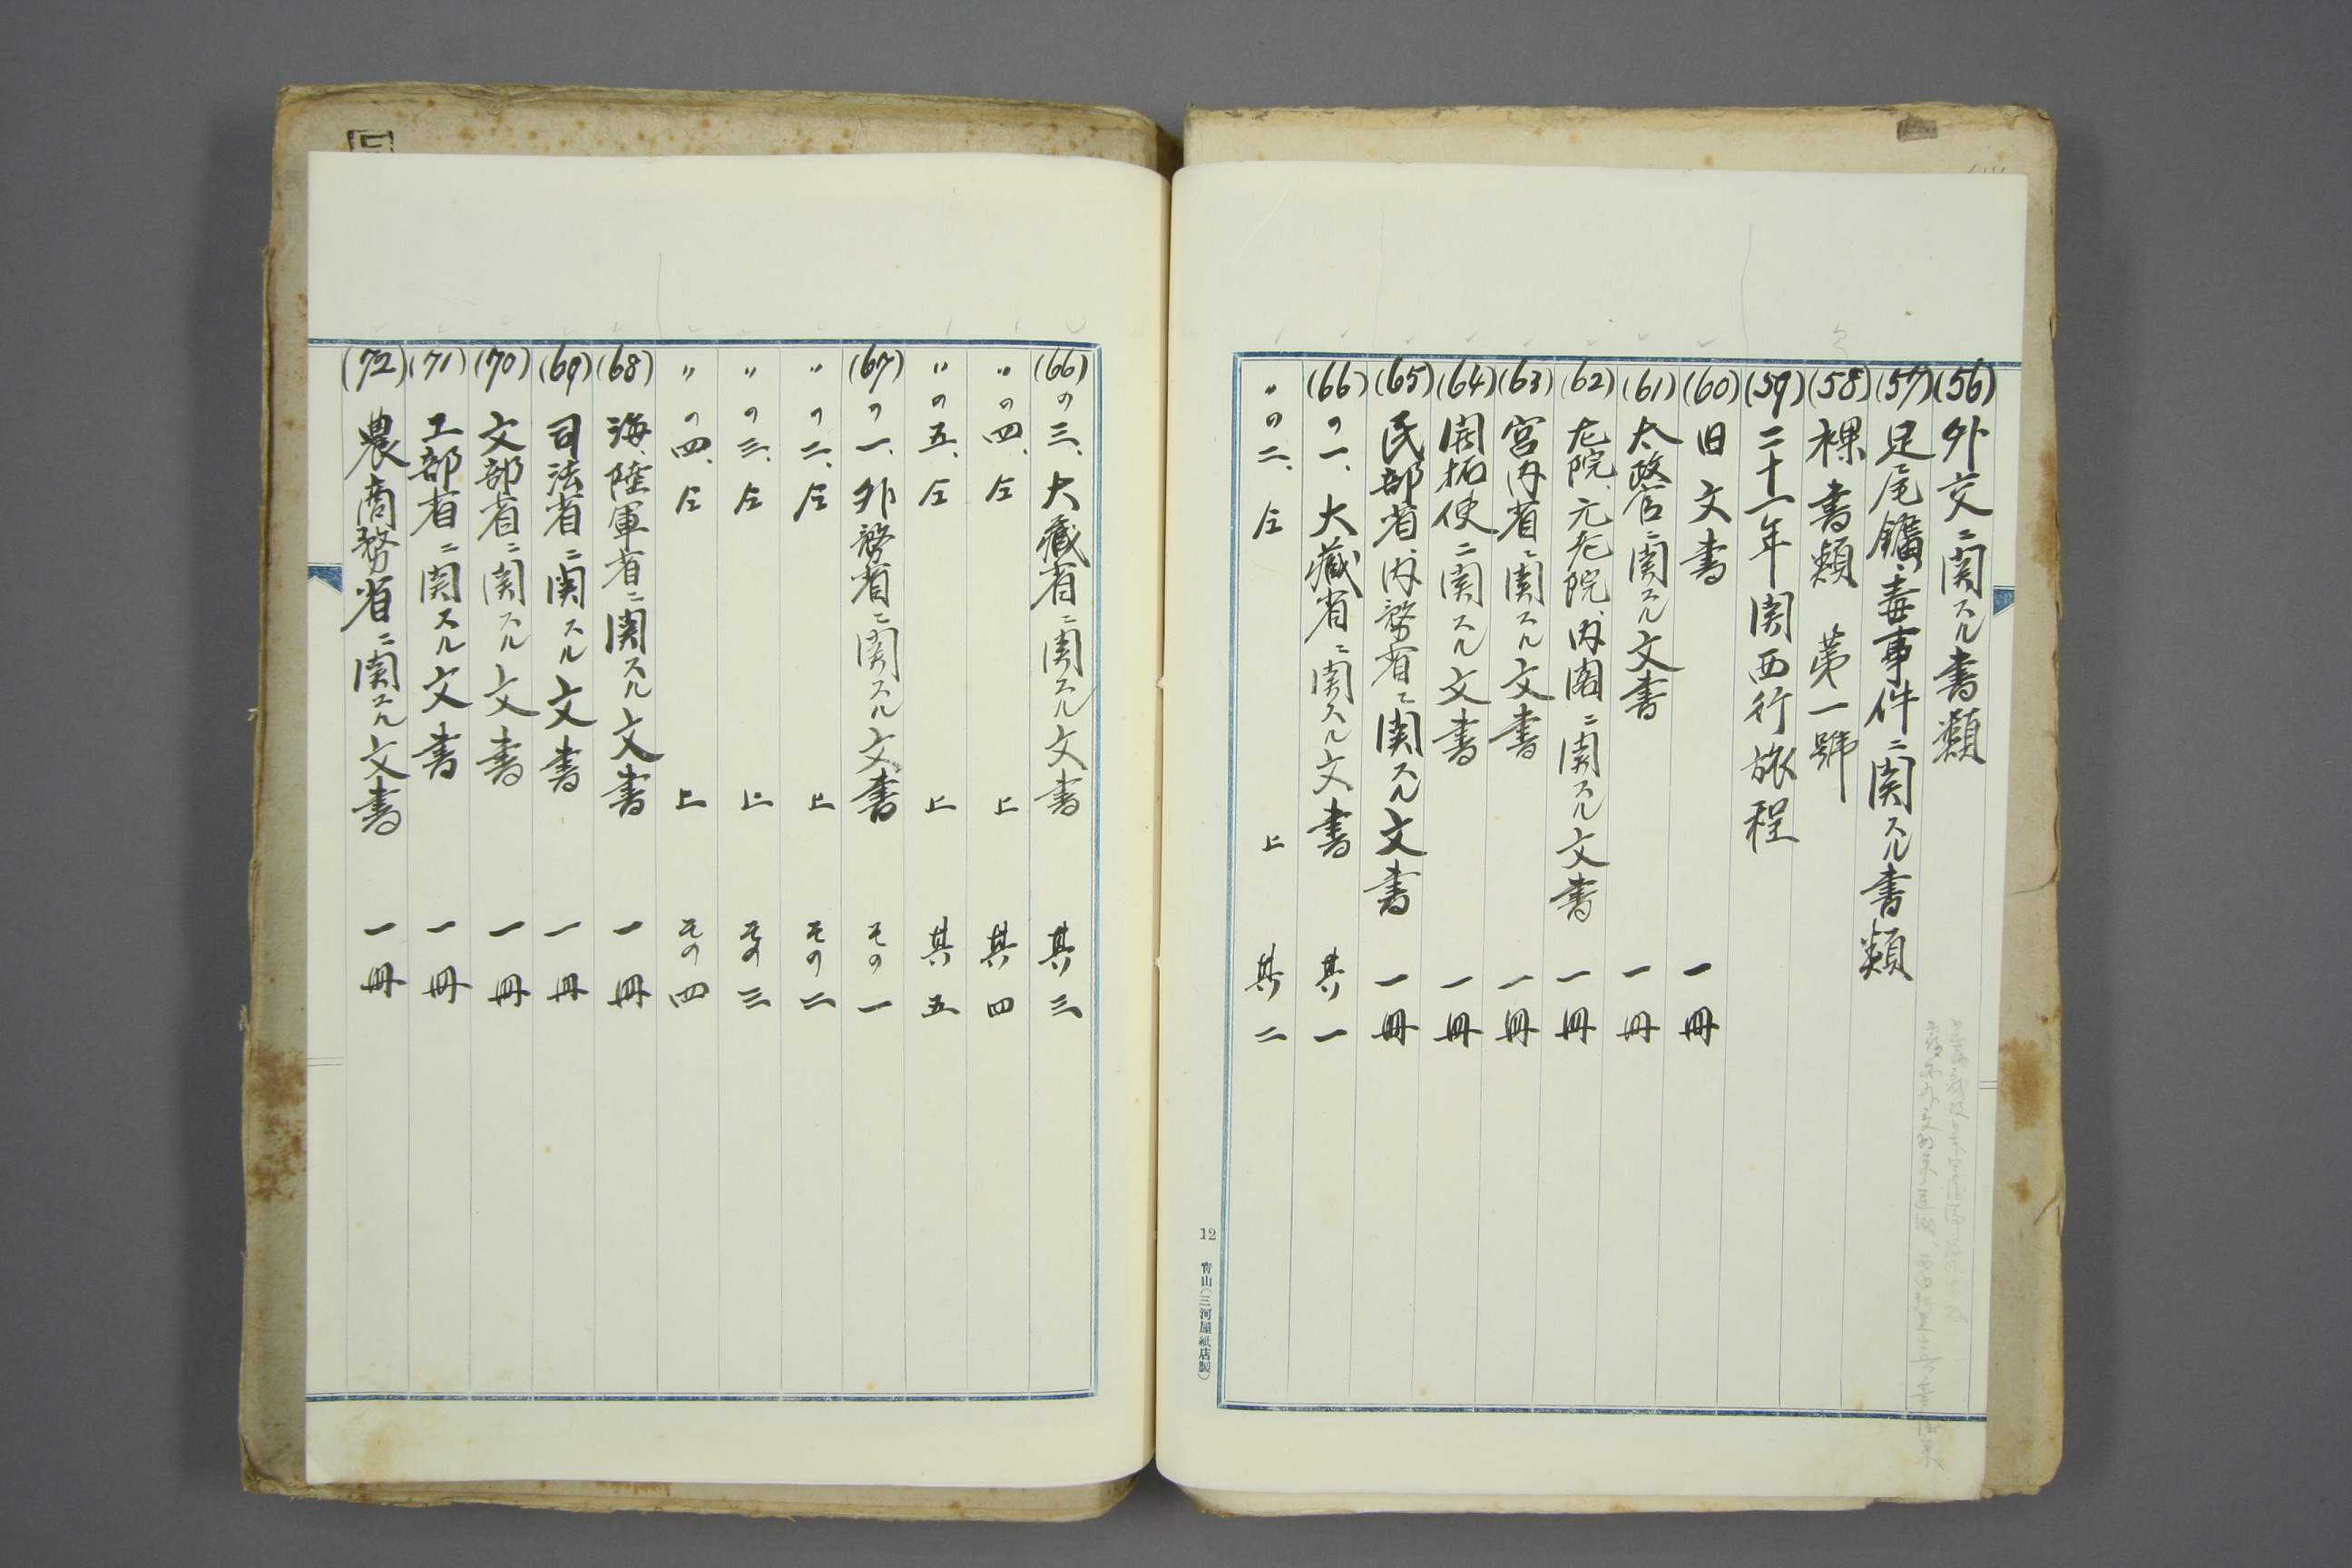 (56) 外交ニ関スル書類
(57) 足尾鑛毒事件ニ関スル書類
(58) 裸書類 第一號
(59) 二十一年関西行旅程
(60) 旧文書 一冊
(61) 太政官ニ関スル文書 一冊
(62) 左院、元老院、内閣ニ関スル文書 一冊
(63) 宮内省ニ関スル文書 一冊
(64) 開拓使ニ関スル文書 一冊
(65) 民部省、内務省ニ関スル文書 一冊
(66)の一、大藏省ニ関スル文書 其ノ一
〃の二、仝 上 其ノ二
12 青山(三河屋紙店製)
(66)の三、大藏省ニ関スル文書 其ノ三
〃の四、仝 上 其ノ四
〃の五、仝 上 其ノ五
(67)の一、外務省ニ関スル文書 その一
〃の二、仝 上 その二
〃の三、仝 上 その三
〃の四、仝 上 その四
(68) 海、陸軍省ニ関スル文書 一冊
(69) 司法省ニ関スル文書 一冊
(70) 文部省ニ関スル文書 一冊
(71) 工部省ニ関スル文書 一冊
(72) 農商務省ニ関スル文書 一冊